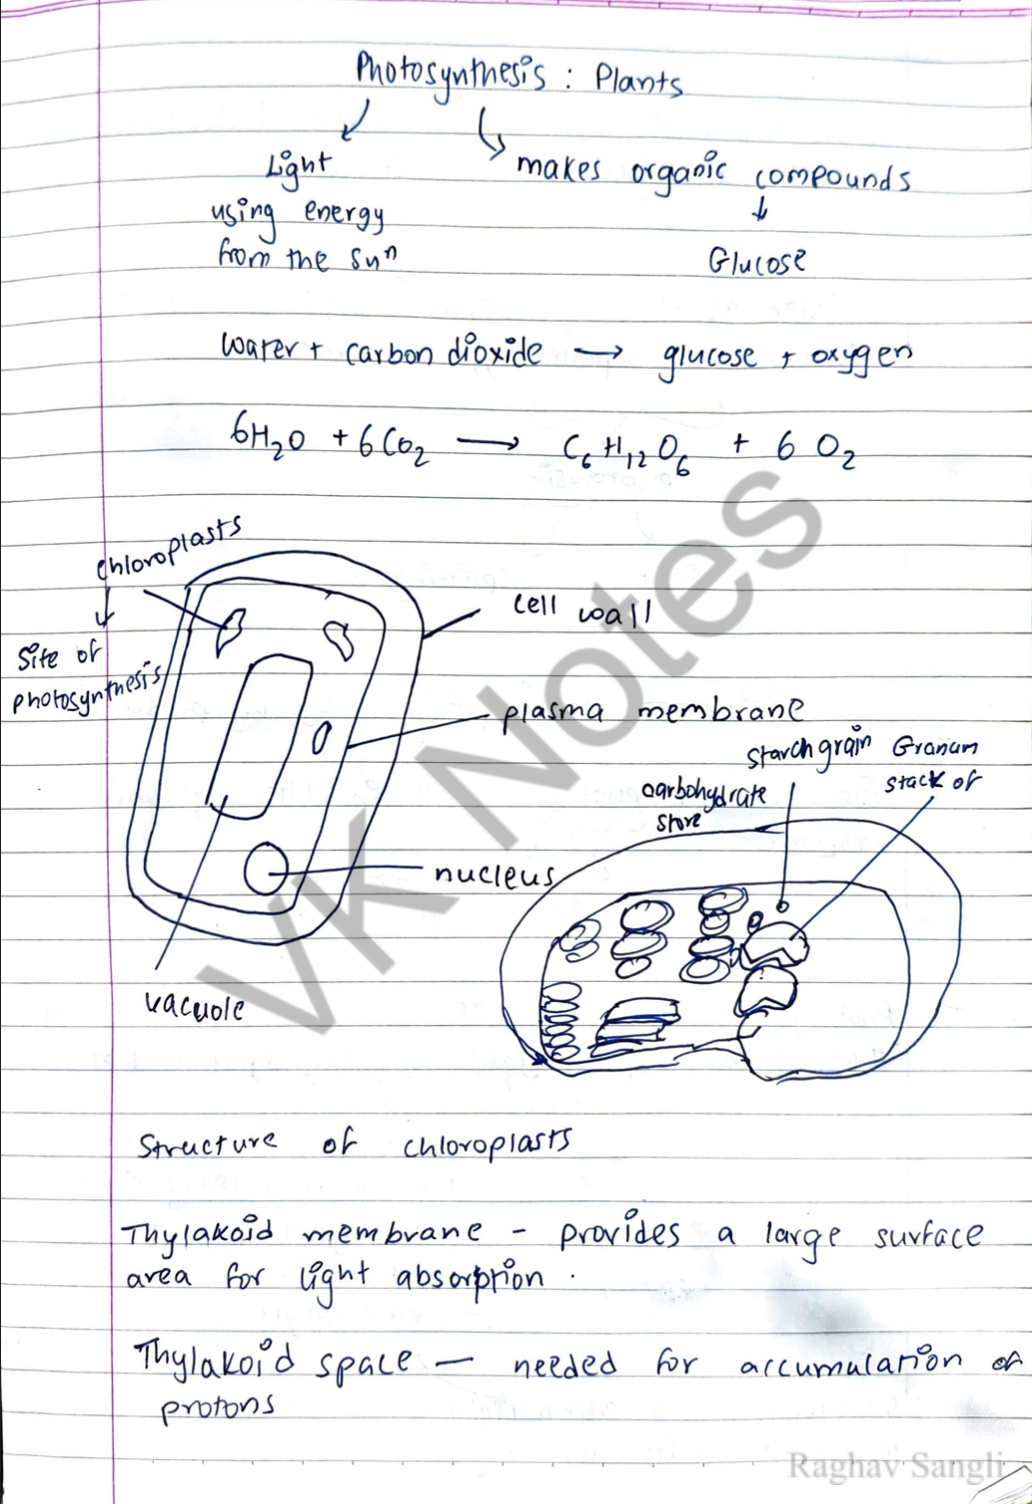 Photosynthesis : Plants
Light
using energy
from the sun
makes organic compounds
Glucose
water + carbon dioxide → glucose + oxygen
6H₂O + 6CO₂ → C₆H₁₂O₆ + 6O₂
chloroplasts
Site of
photosynthesis
cell wall
plasma membrane
nucleus
vacuole
starch grain
carbohydrate
store
Granum
stack of
Structure of chloroplasts
Thylakoid membrane - provides a large surface
area for light absorption.
Thylakoid space — needed for accumulation of
protons
VK Notes
Raghav Sangli